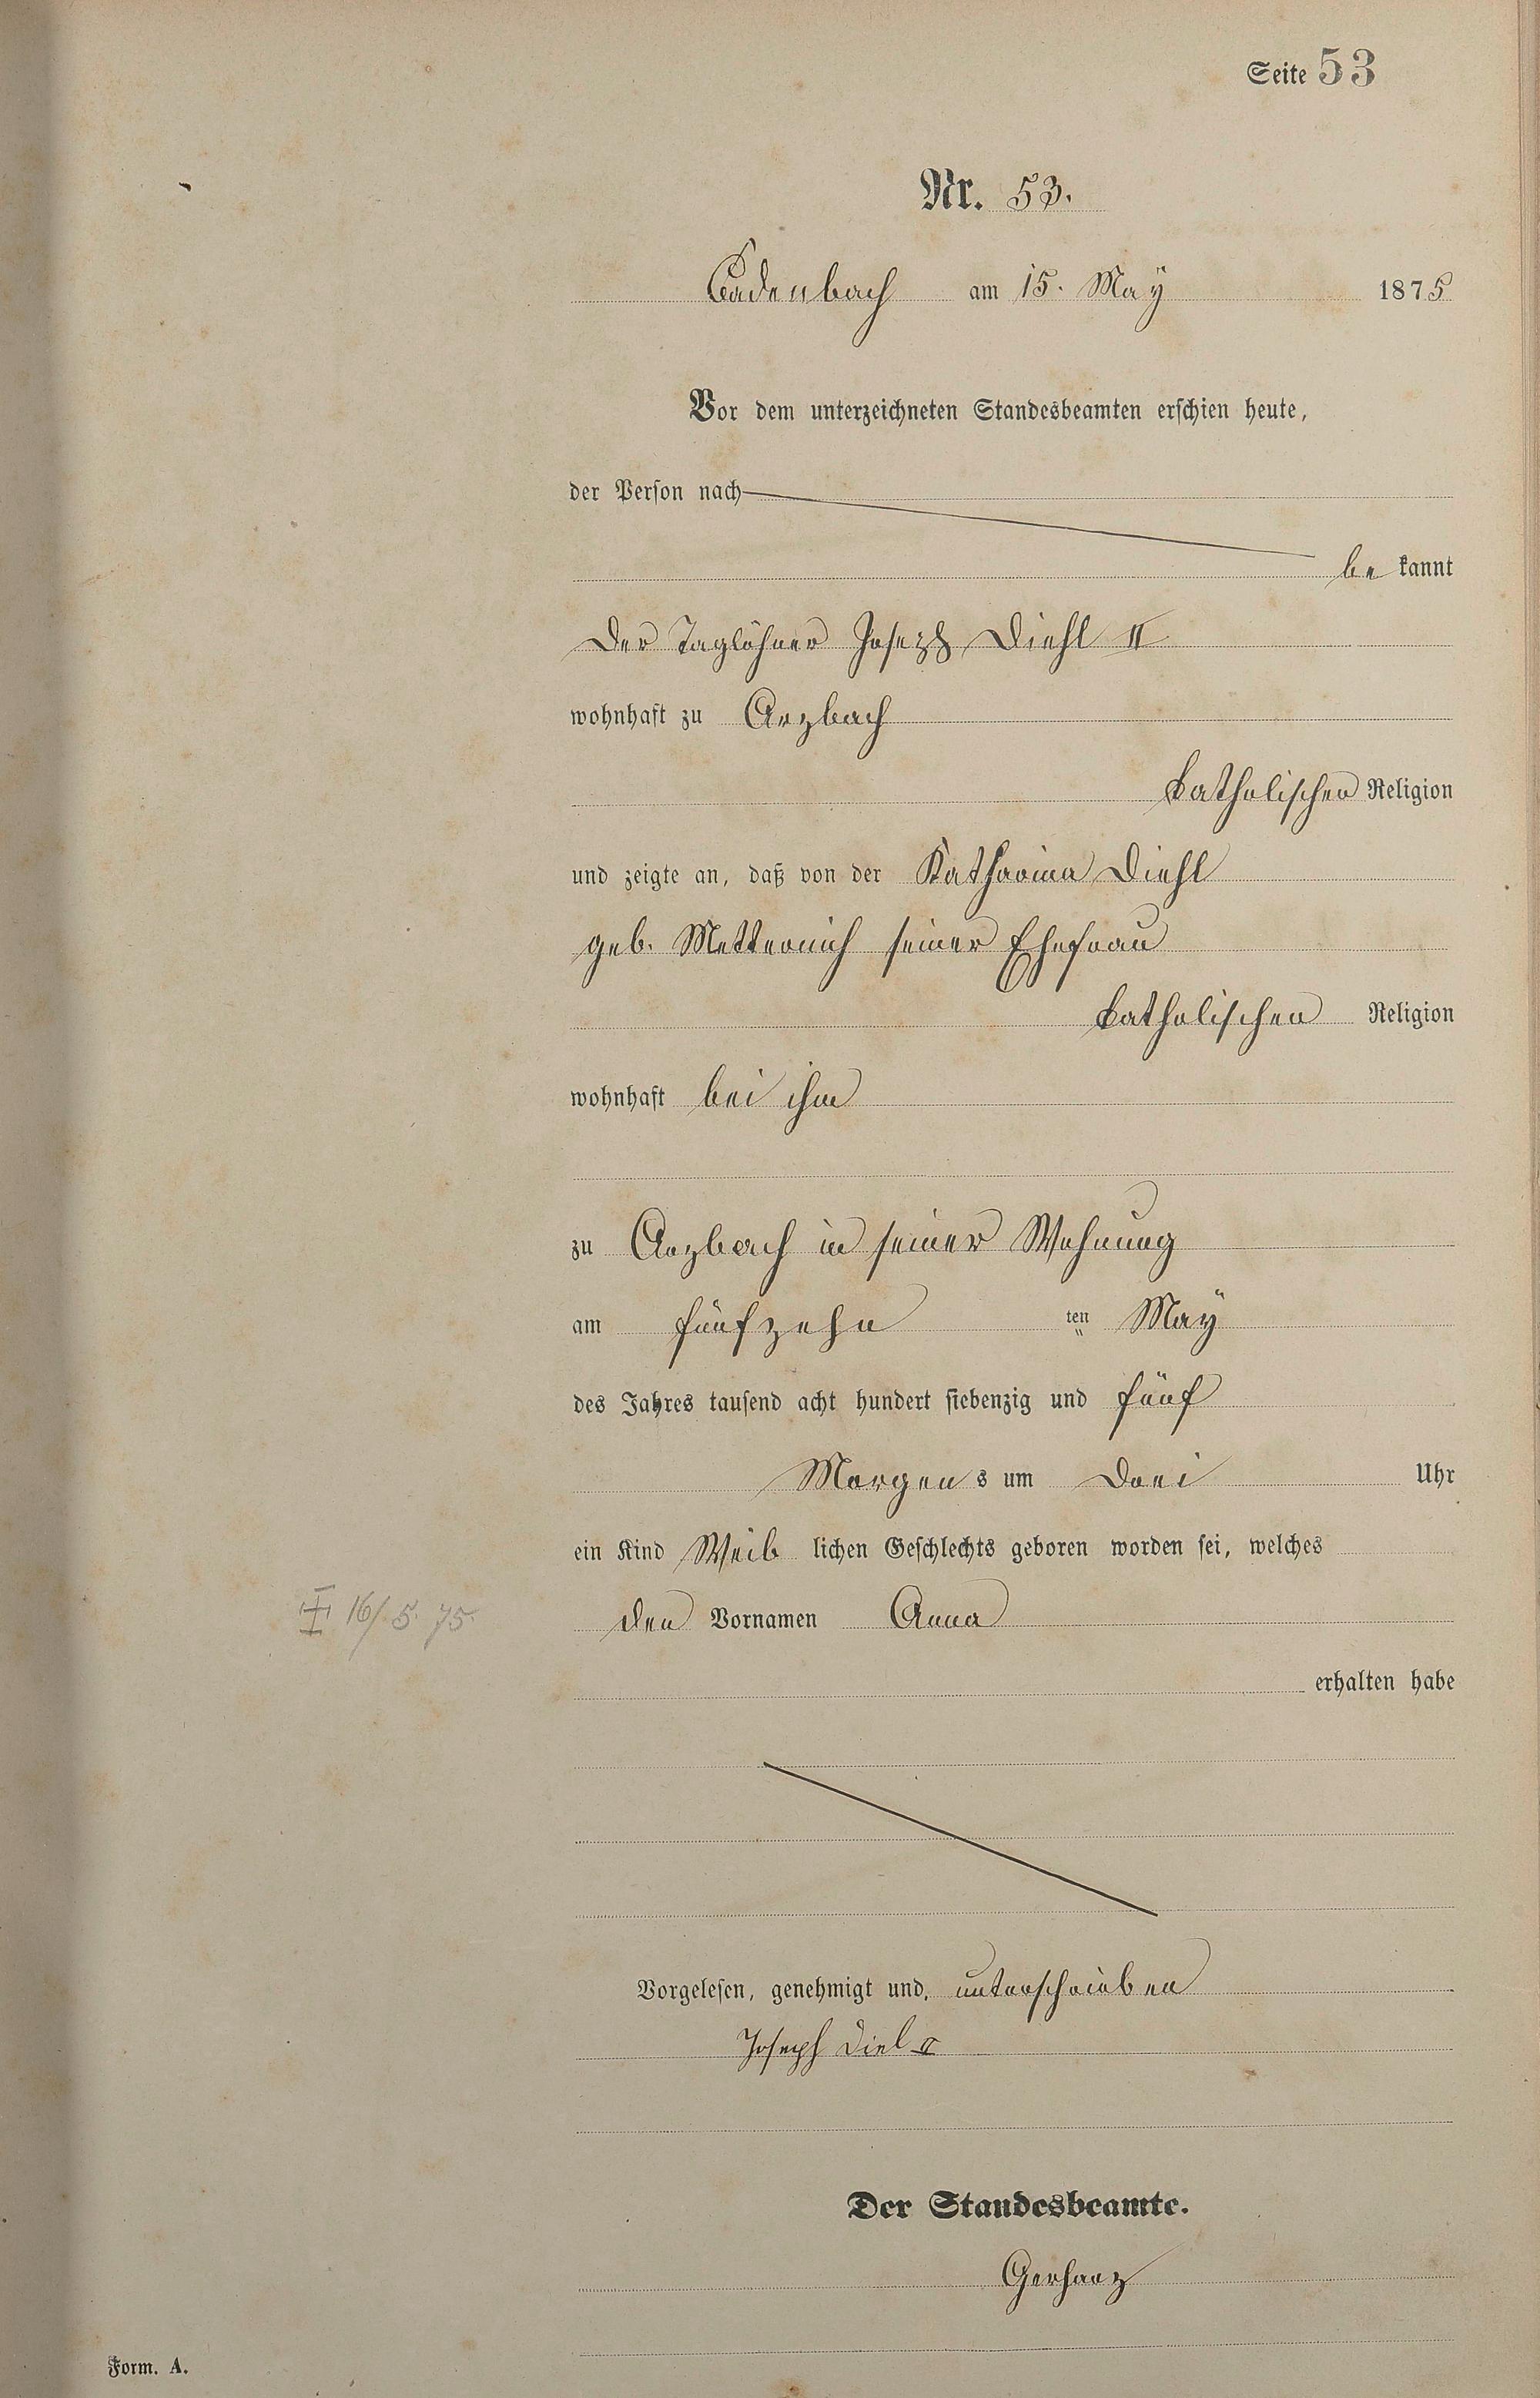 Seite 53
Nr. 53.
Cadenbach am 15. May 1875
Vor dem unterzeichneten Standesbeamten erschien heute,
der Person nach
be kannt
Der Taglöhner Joseph Diehl II
wohnhaft zu Arzbach
katholischer Religion
und zeigte an, daß von der Katharina Diehl
geb. Metternich seiner Ehefrau
katholischen Religion
wohnhaft bei ihm
zu Arzbach in seiner Wohnung
am fünfzehn ten May
des Jahres tausend acht hundert siebenzig und fünf
Morgens um Drei Uhr
ein Kind Weib lichen Geschlechts geboren worden sei, welches
‡ 16/5. 75. den Vornamen Anna
erhalten habe
Vorgelesen, genehmigt und unterschrieben
Joseph Diel II
Der Standesbeamte.
Gerharz
Form. A.